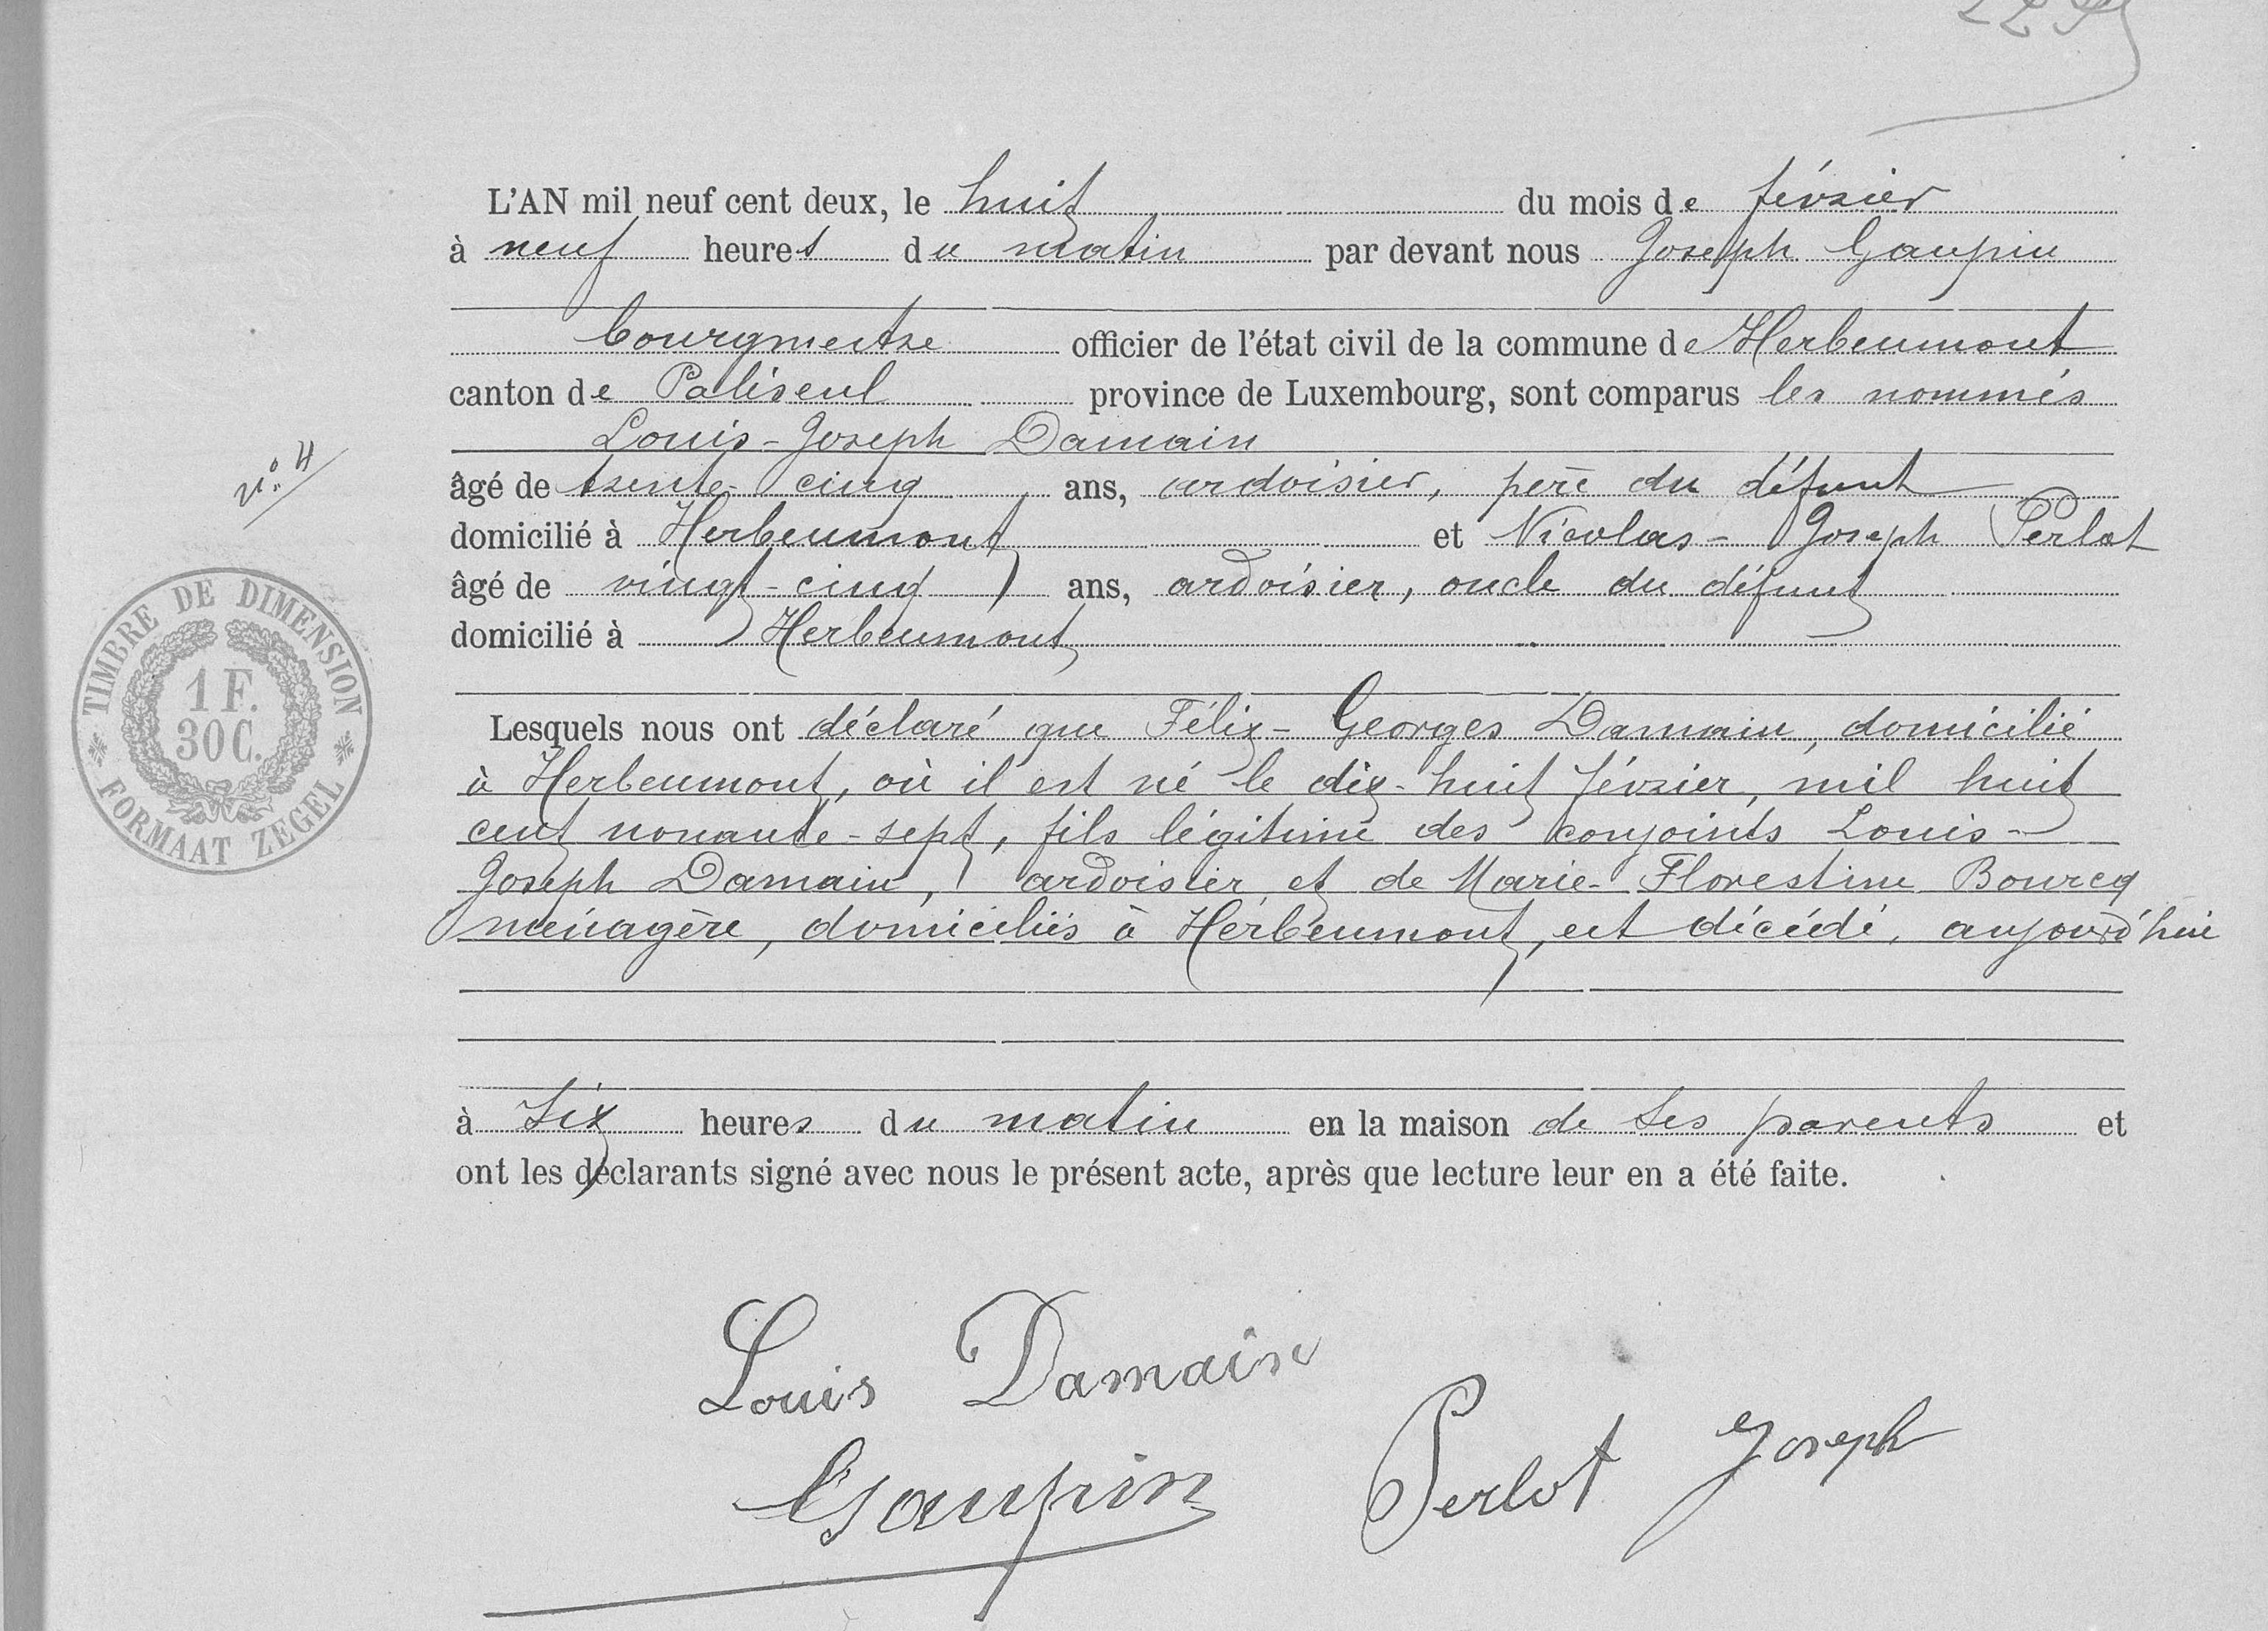 L'AN mil neuf cent deux, le huit du mois de février
à neuf heures du matin par devant nous Joseph Gaupin
bourgmestre officier de l'état civil de la commune de Herbeumont
canton de Paliseul province de Luxembourg, sont comparus les nommés
Louis-Joseph Damain
n° 4
âgé de trente-cinq ans, ardoisier, père du défunt
domicilié à Herbeumont et Nicolas-Joseph Perlot
âgé de vingt-cinq ans, ardoisier, oncle du défunt
domicilié à Herbeumont
TIMBRE DE DIMENSION
1 F.
30 C.
FORMAAT ZEGEL
Lesquels nous ont déclaré que Félix-Georges Damain, domicilié
à Herbeumont, où il est né le dix-huit février, mil huit
cent nonante-sept, fils légitime des conjoints Louis-
Joseph Damain, ardoisier et de Marie-Florestine Bourcq
ménagère, domiciliés à Herbeumont, est décédé, aujourd'hui
à six heures du matin en la maison de ses parents et
ont les déclarants signé avec nous le présent acte, après que lecture leur en a été faite.
Louis Damain
Gaupin Perlot Joseph